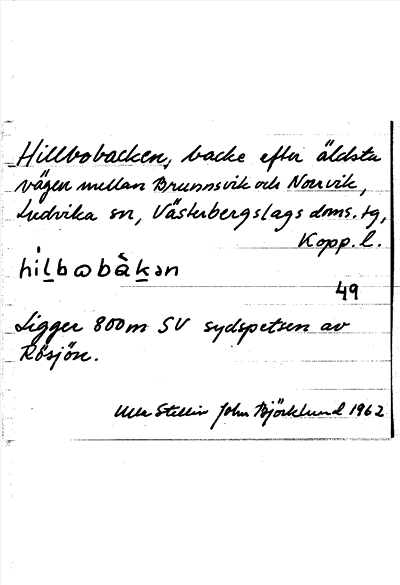 Hillbobacken, backe efter äldsta
vägen mellan Brunnsvik och Norrvik,
Ludvika sn, Västerbergslags doms. tg,
Kopp. l.
hìl̲bɷbàk̲ən
49
Ligger 800m SV sydspetsen av
Rösjön.
Ulla Stellin John Björklund 1962